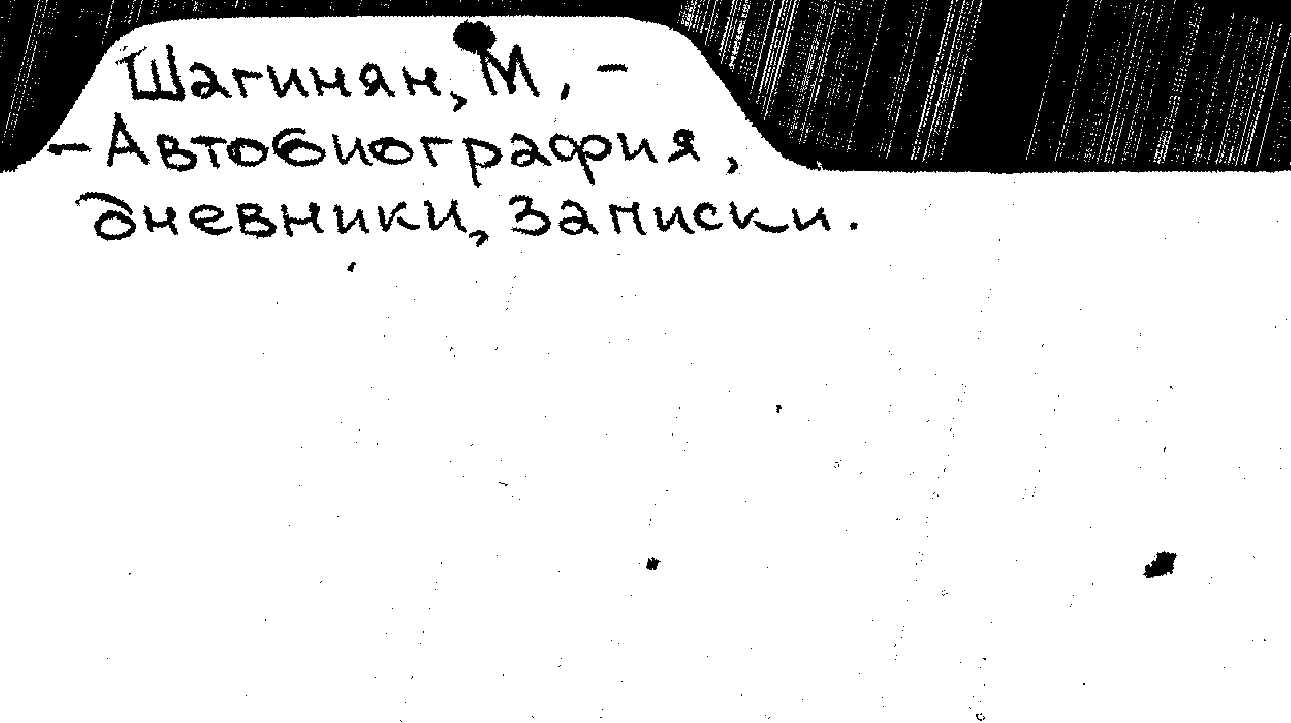 Шагинян, М. -
- Автобиография,
дневники, записки.